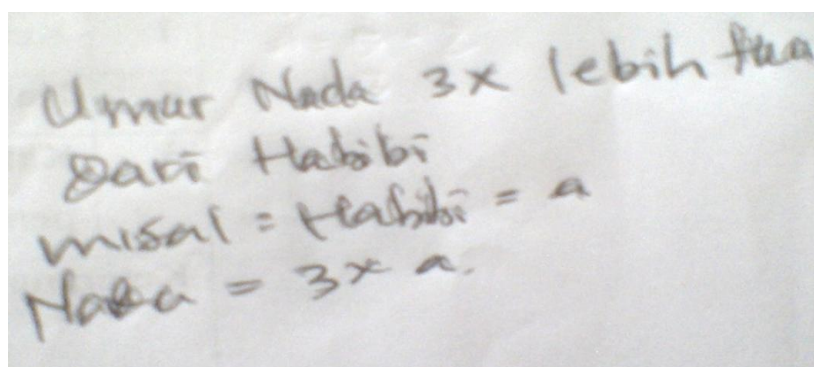 Umur Nada 3x lebih tua
Dari Habibi
misal = Habibi = a
Nada = 3x a.